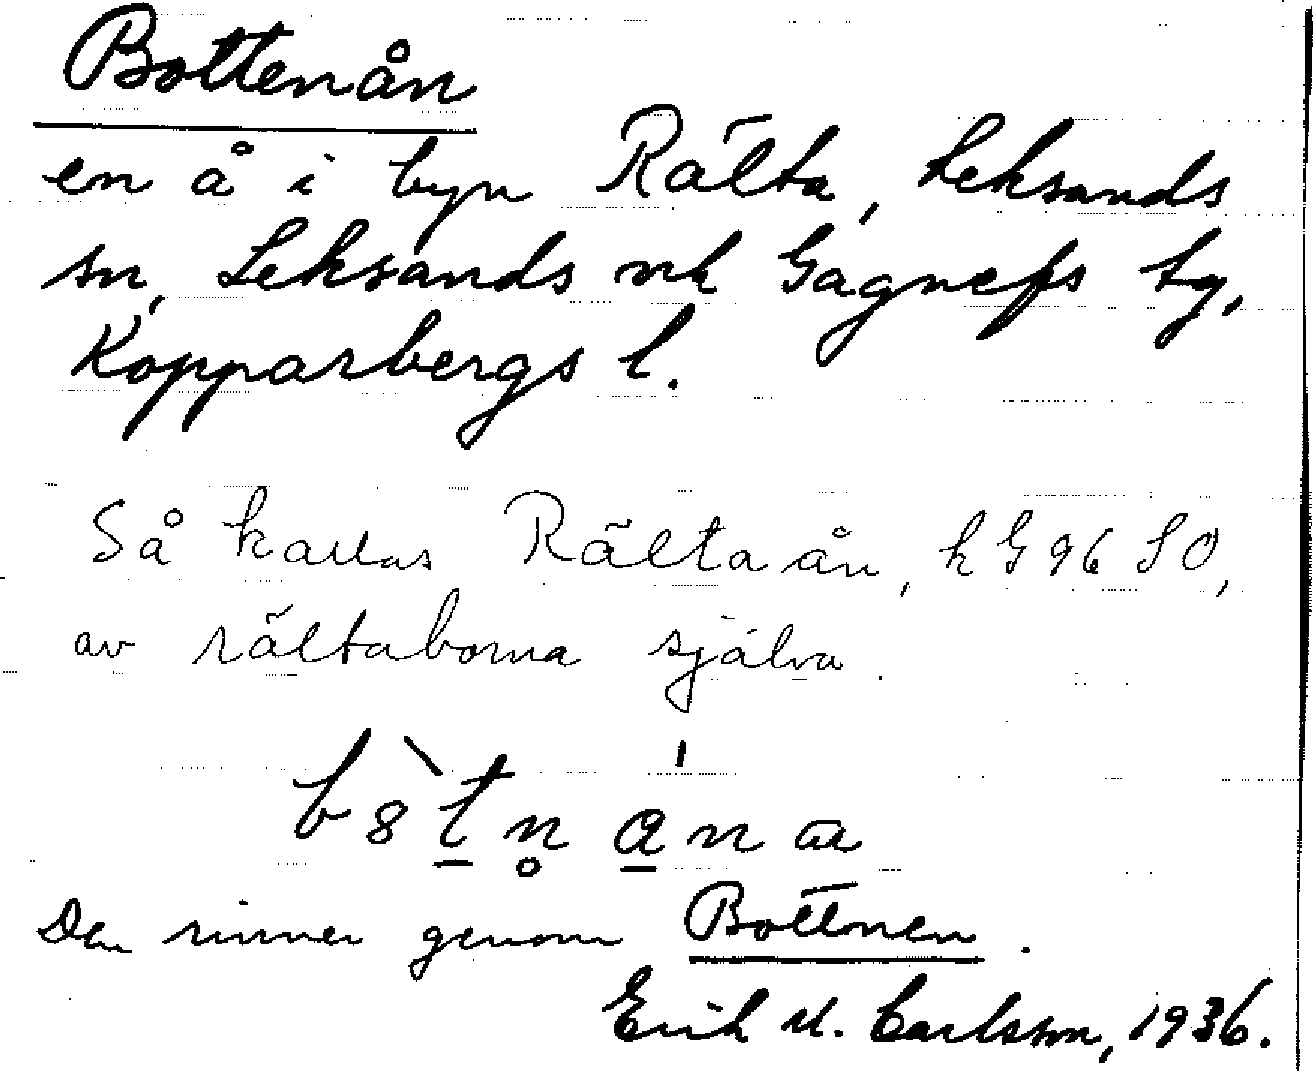 Bottenån
en å i byn Rälta, Leksands
sn, Leksands ok Gagnefs tg,
Kopparbergs l.
Så kallas Rältaån, h G 96 SO,
av rältaborna själva.
Den rinner genom Bottnen.
Erik M. Carlsson, 1936.